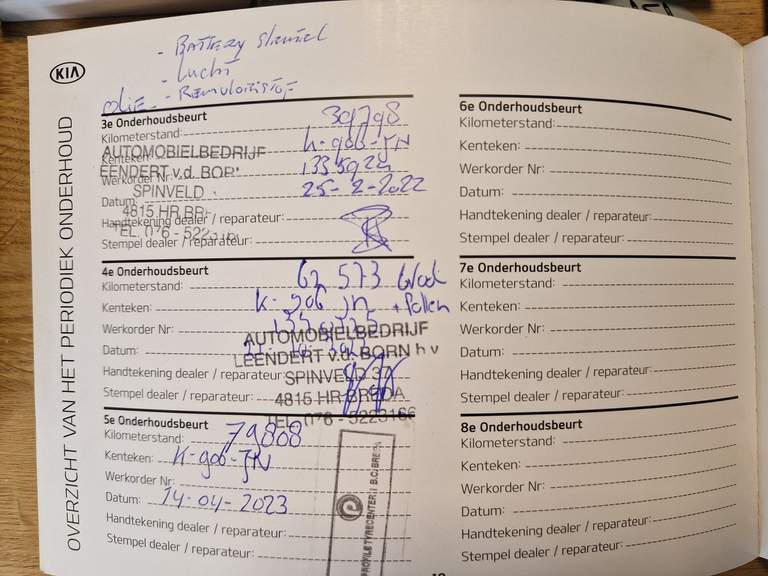 - Battery sleutel
- Lucht
olie - Remvloeistof
KIA
OVERZICHT VAN HET PERIODIEK ONDERHOUD
3e Onderhoudsbeurt
Kilometerstand: 39798
Kenteken: K-906-JN
Werkorder Nr:
Datum: 25-2-2022
Handtekening dealer / reparateur:
Stempel dealer / reparateur:
AUTOMOBIELBEDRIJF
EENDERT v.d. BOR
SPINVELD
4815 HR BR
TEL. 076 - 522
4e Onderhoudsbeurt
Kilometerstand: 573
Kenteken: K-906 JN + pollen
Werkorder Nr:
Datum:
Handtekening dealer / reparateur:
Stempel dealer / reparateur:
AUTOMOBIELBEDRIJF
LEENDERT v.d. BORN h v
SPINVELD 37
4815 HR BREDA
TEL. 076 - 5223166
5e Onderhoudsbeurt
Kilometerstand: 79808
Kenteken: K-906-JN
Werkorder Nr:
Datum: 14-04-2023
Handtekening dealer / reparateur:
Stempel dealer / reparateur:
PROFILE TYRECENTER
6e Onderhoudsbeurt
Kilometerstand:
Kenteken:
Werkorder Nr:
Datum:
Handtekening dealer / reparateur:
Stempel dealer / reparateur:
7e Onderhoudsbeurt
Kilometerstand:
Kenteken:
Werkorder Nr:
Datum:
Handtekening dealer / reparateur:
Stempel dealer / reparateur:
8e Onderhoudsbeurt
Kilometerstand:
Kenteken:
Werkorder Nr:
Datum:
Handtekening dealer / reparateur:
Stempel dealer / reparateur: